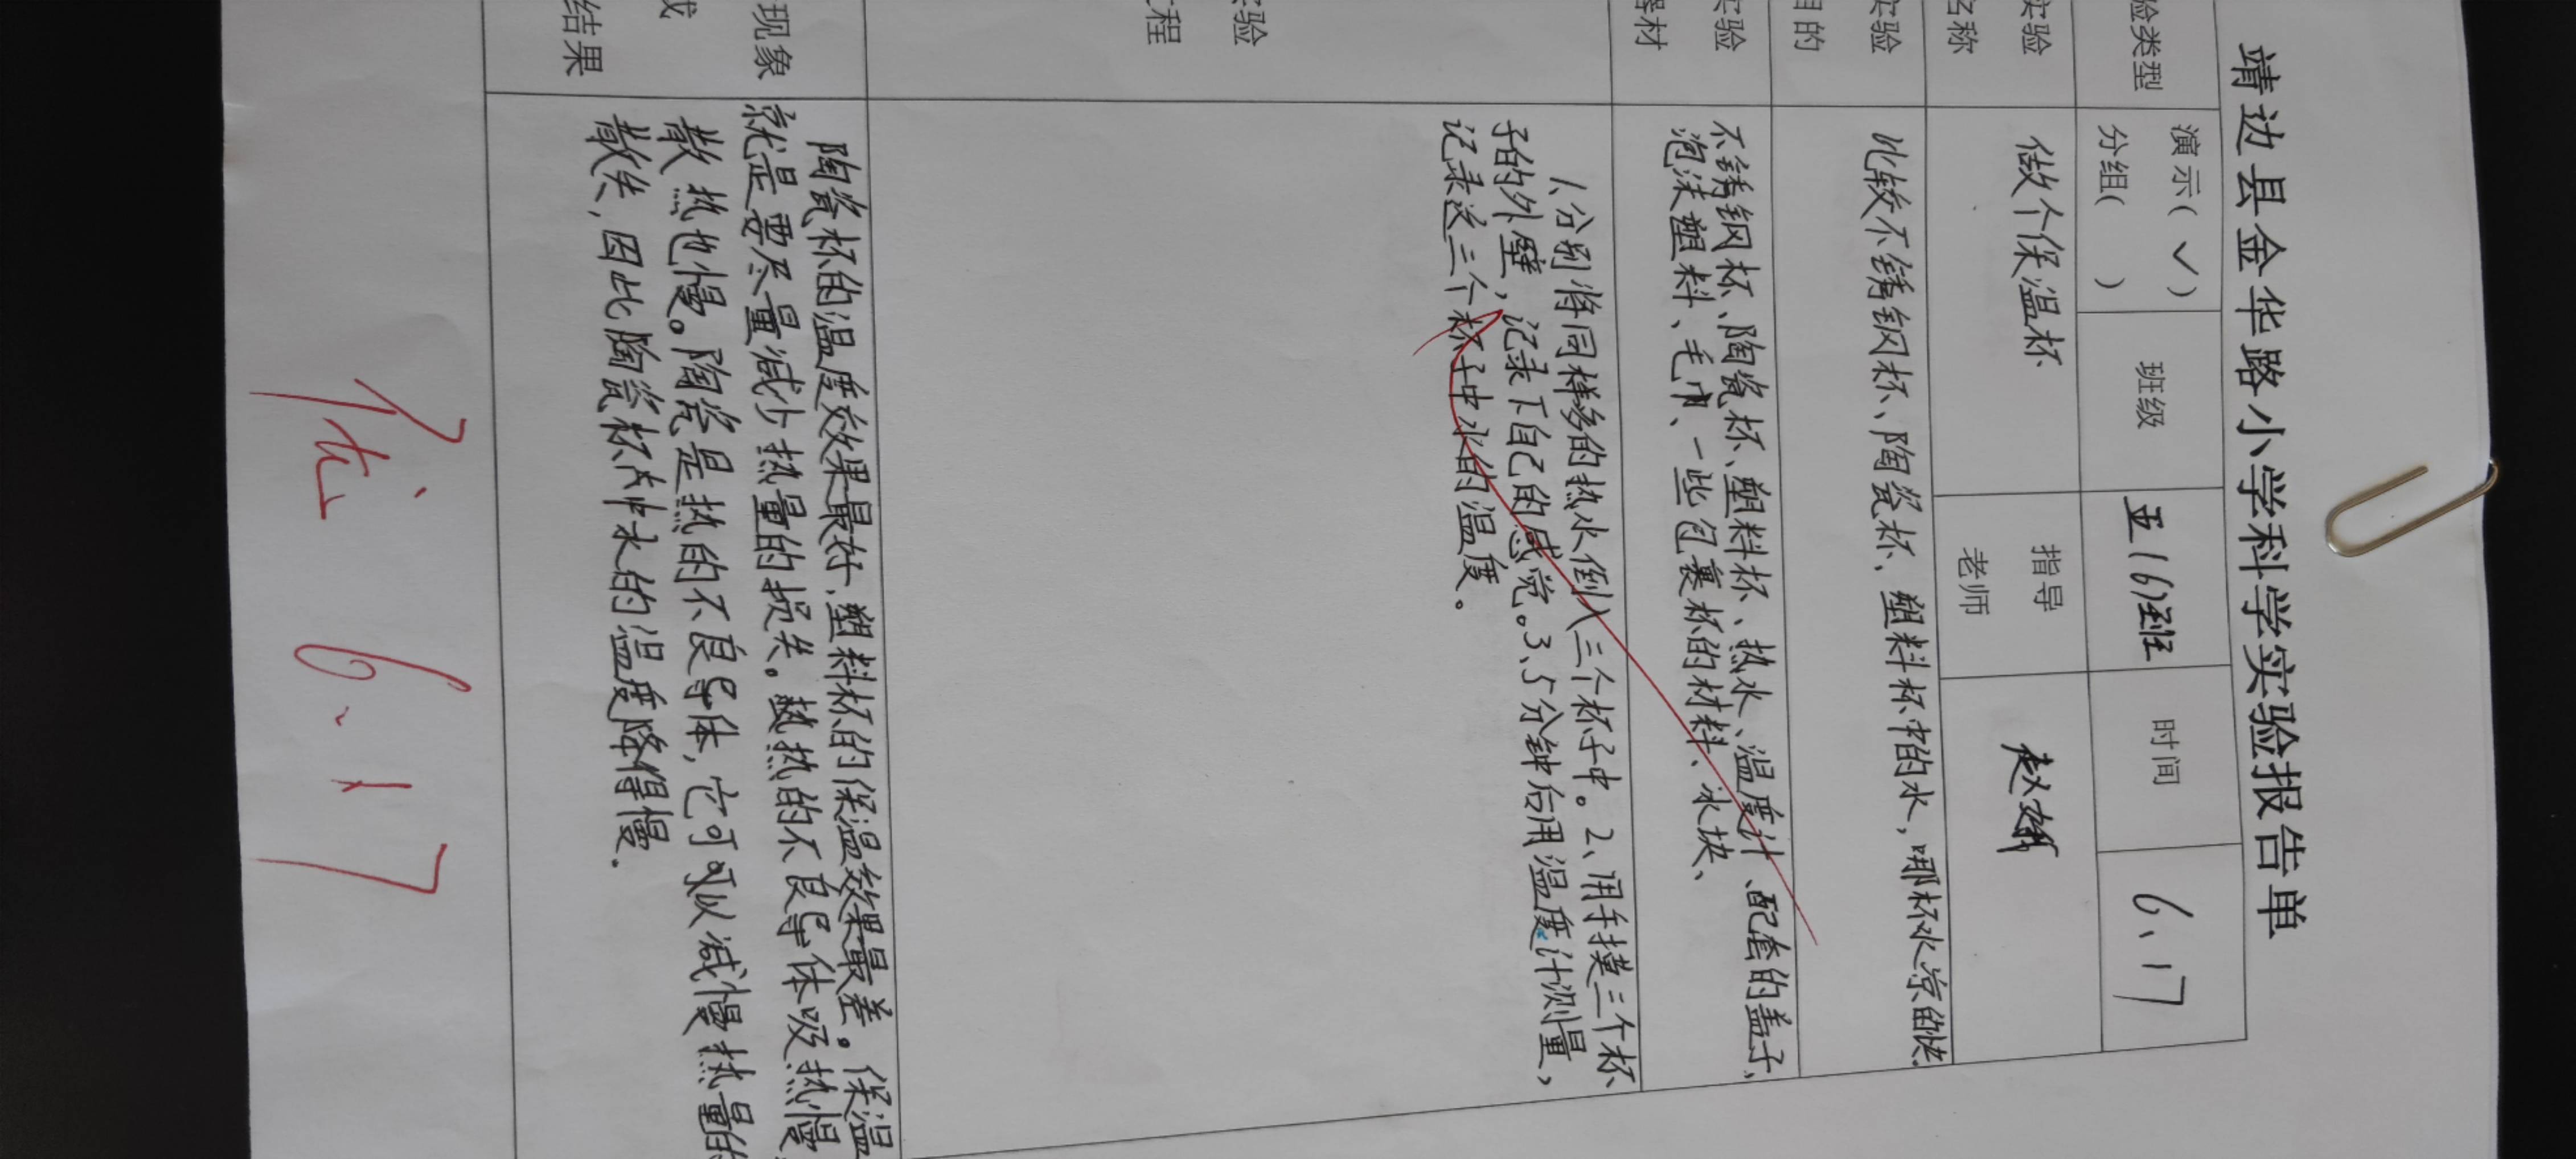 靖边县金华路小学科学实验报告单
验类型 演示(✓) 班级 五16)班 时间 6.17
分组( )
实验 做个保温杯 指导
名称 老师
实验 比较不锈钢杯、陶瓷杯、塑料杯中的水，哪杯水凉的快.
目的
实验 不锈钢杯、陶瓷杯、塑料杯、热水、温度计、配套的盖子、
器材 泡沫塑料、毛巾、一些包裹杯的材料、冰块、
实验 1、分别将同样多的热水倒入三个杯子中。2、用手摸三个杯
程 子的外壁，记录下自己的感觉。3、5分钟后用温度计测量，
记录这三个杯子中水的温度。
陶瓷杯的温度效果最好、塑料杯的保温效果最差。保温
现象 就是要尽量减少热量的损失。热的不良导体吸热慢
散热也慢。陶瓷是热的不良导体，它可以减慢热量的
结果 散失，因此陶瓷杯中水的温度降得慢.
6.17